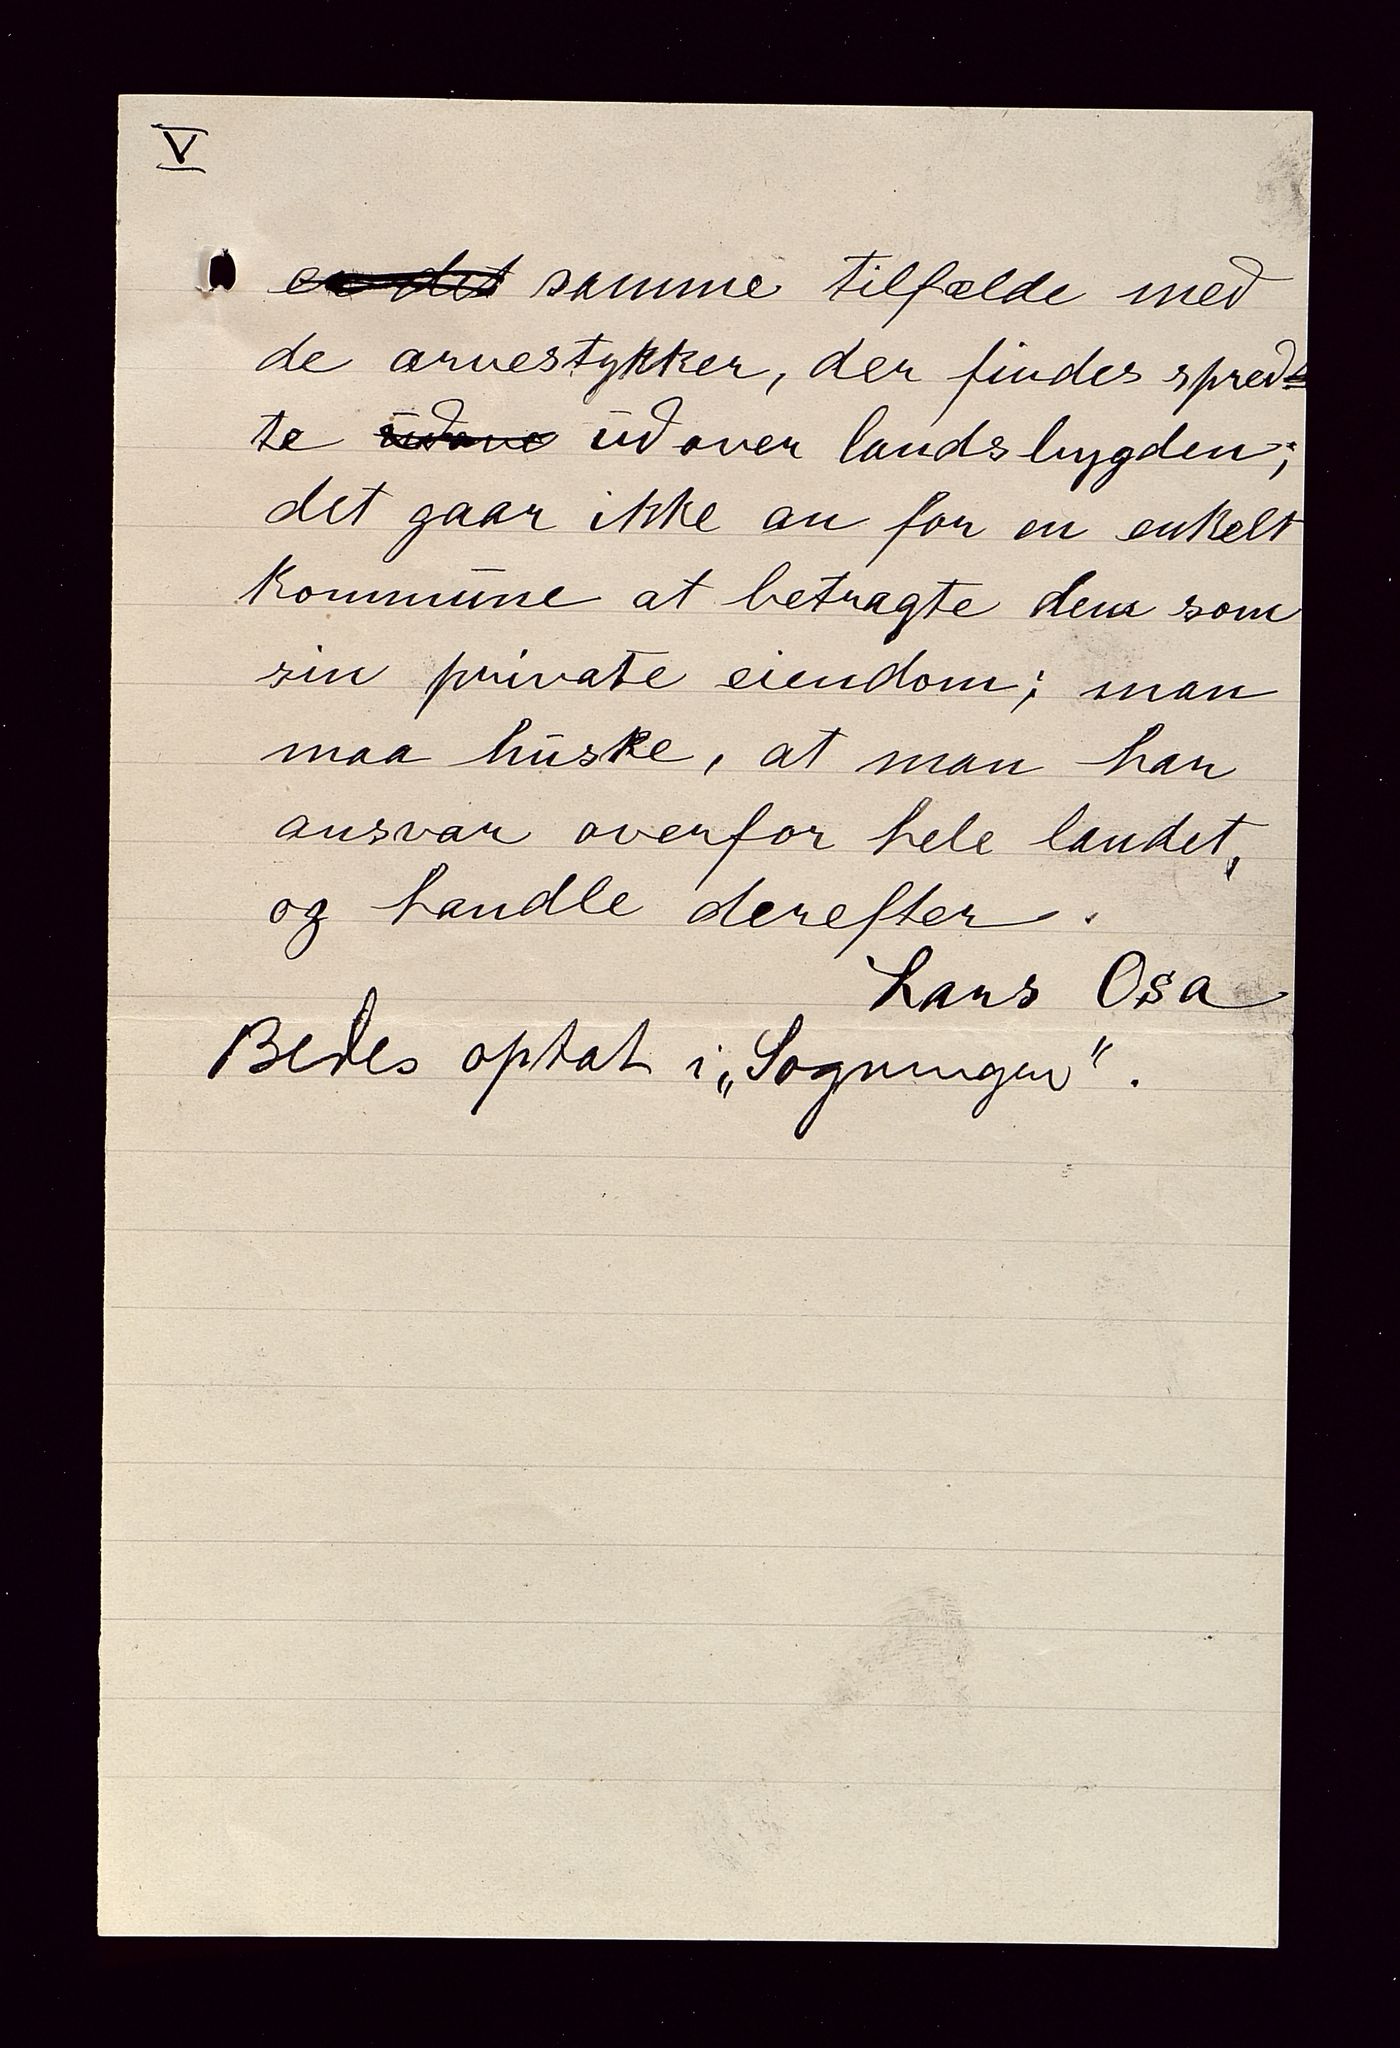 V
er det samme tilfælde med
de arvestykker, der findes spred-
te udove ud over landsbygden;
det gaar ikke an for en enkelt
kommune at betragte dem som
sin private eiendom; man
maa huske, at man har
ansvar overfor hele landet,
og handle derefter.
Lars Osa
Bedes optat i „Sogningen".